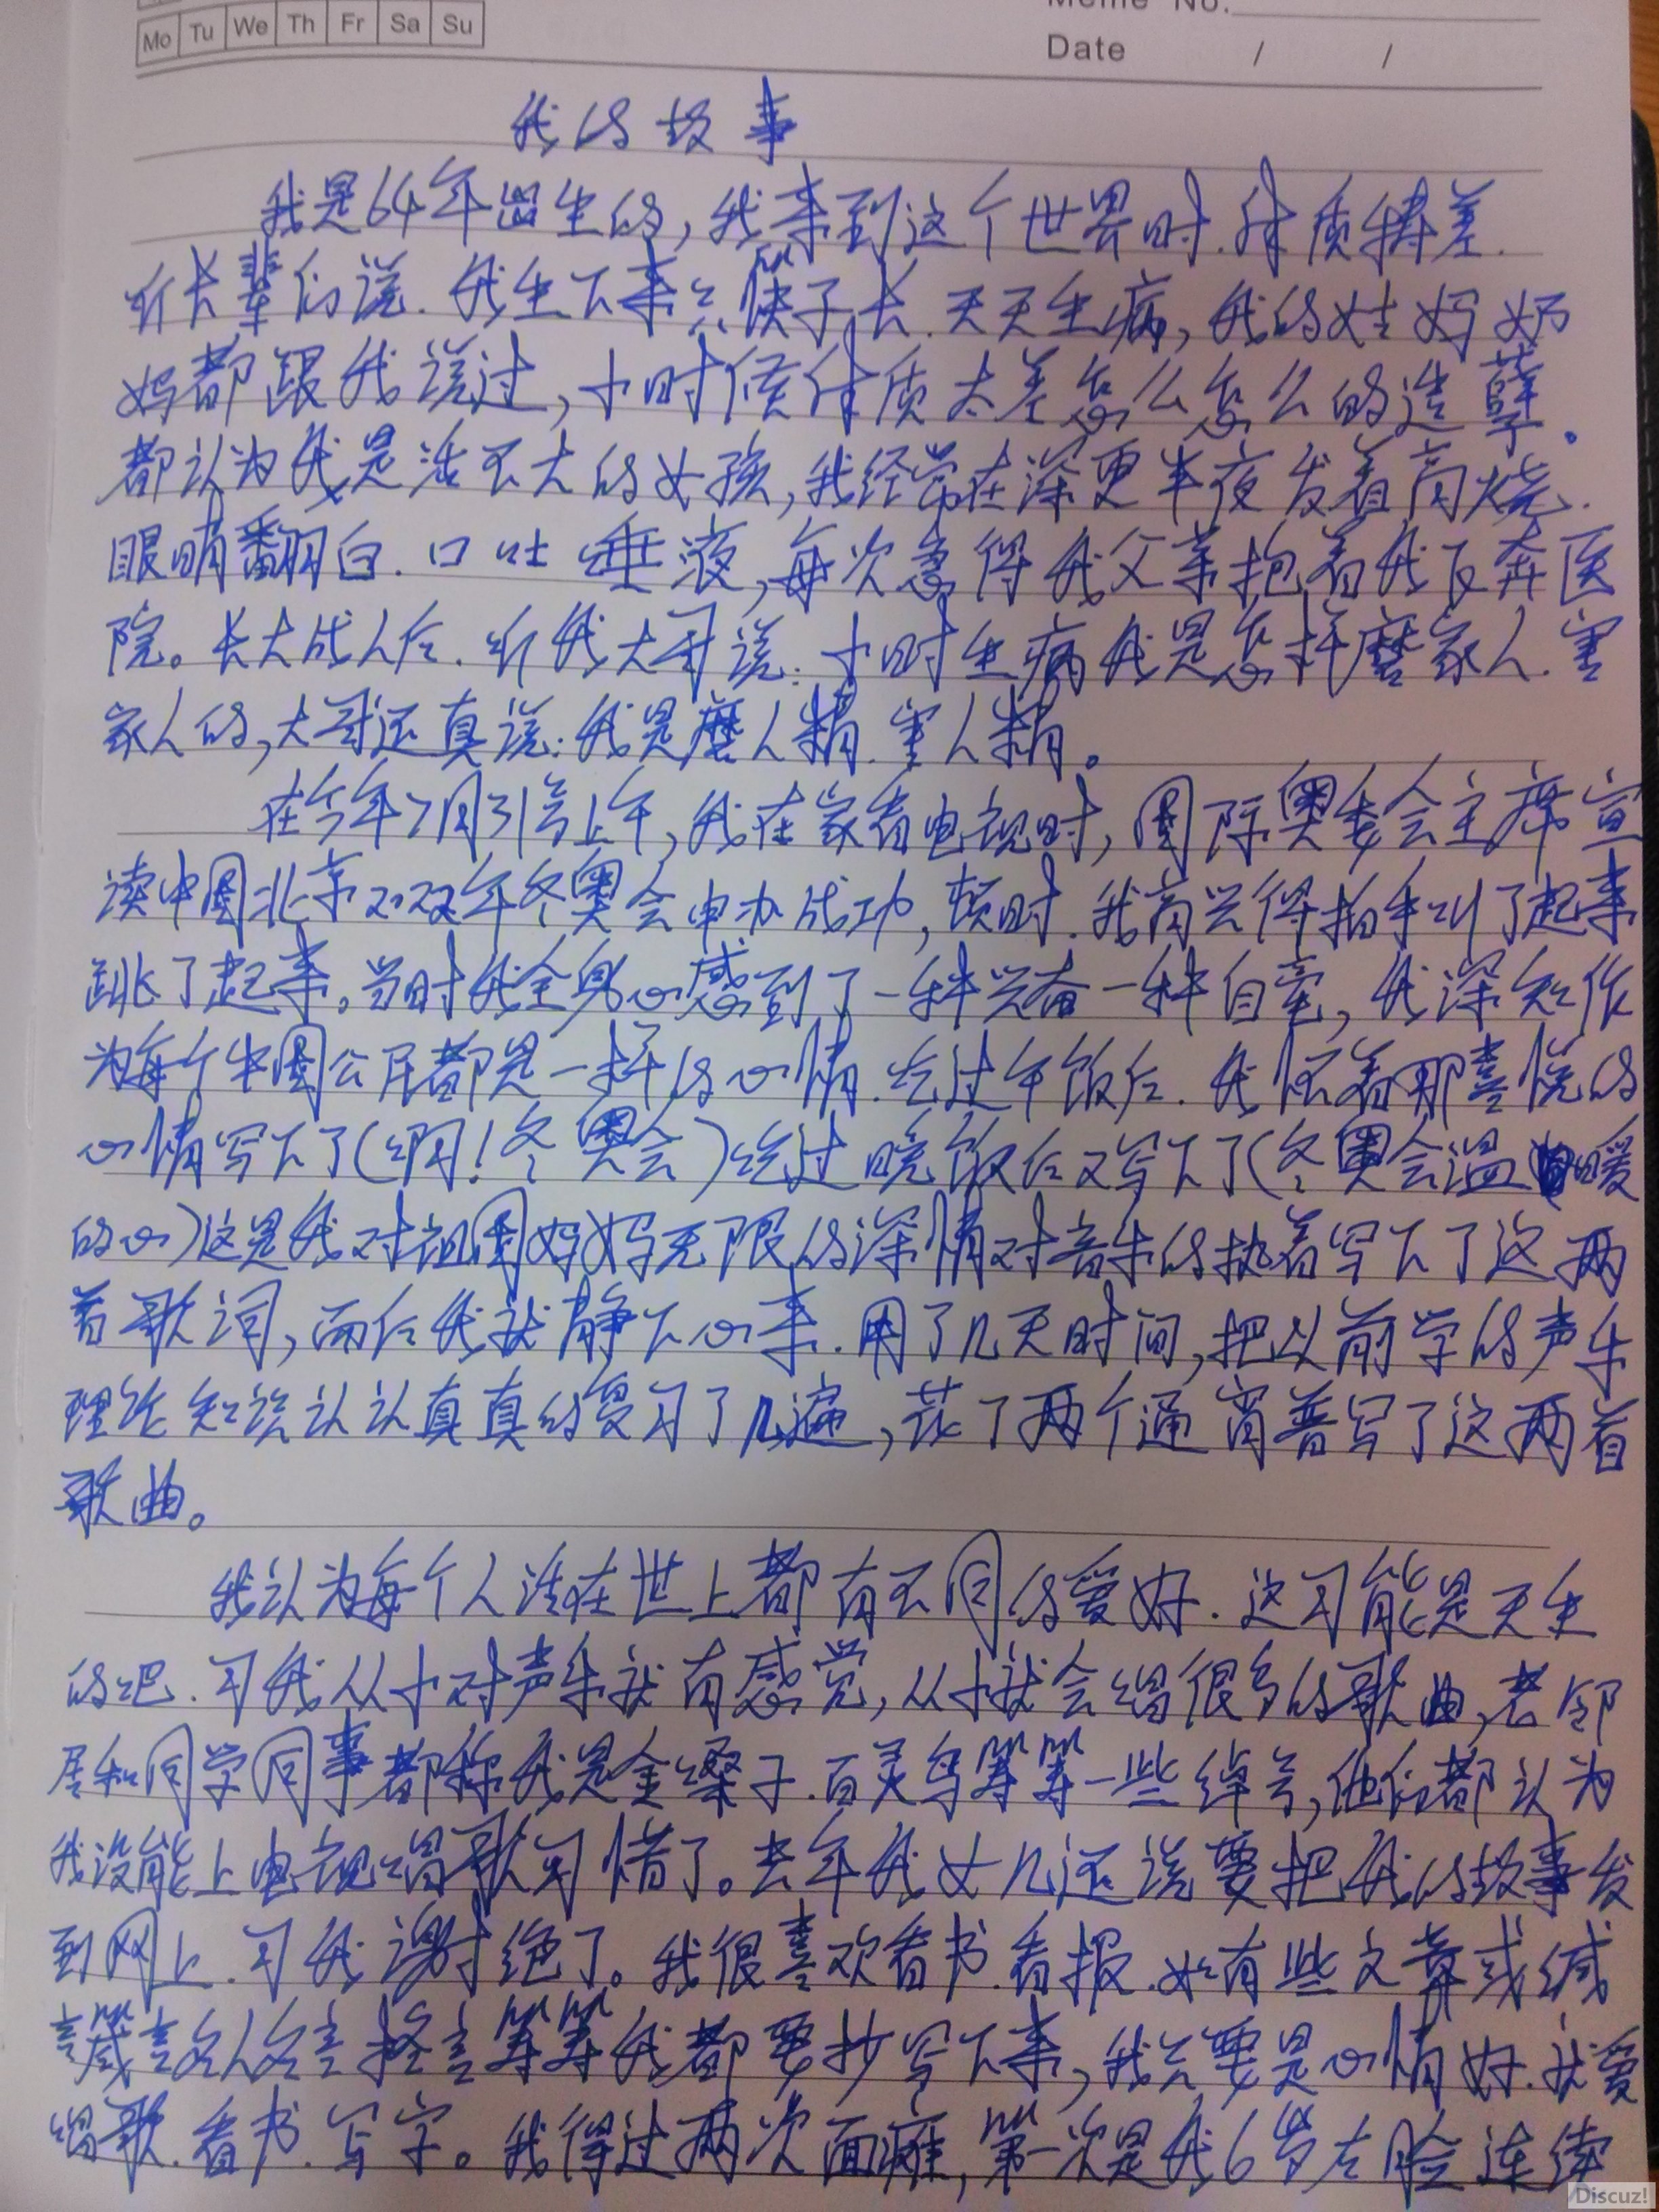 Mo Tu We Th Fr Sa Su
Memo No.
Date / /
我的故事
我是64年出生的,我来到这个世界时.体质特差.
听长辈们说.我生下来只筷子长.天天生病,我的姑妈奶
妈都跟我说过,小时候体质太差怎么怎么的造孽。
都认为我是活不大的女孩,我经常在深更半夜发着高烧.
眼睛翻白.口吐唾液,每次急得我父亲抱着我飞奔医
院。长大成人后.听我大哥说:小时生病我是怎样磨家人.害
家人的,大哥还真说:我是磨人精.害人精。
在今年7月31号上午,我在家看电视时,国际奥委会主席宣
读中国北京2022年冬奥会申办成功,顿时.我高兴得拍手叫了起来
跳了起来。当时我全身心感到了一种兴奋一种自豪,我深知作
为每个中国公民都是一样的心情.吃过午饭后.我怀着那喜悦的
心情写下了(啊!冬奥会)吃过晚饭后又写下了(冬奥会温暖
的心)这是我对祖国妈妈无限的深情对音乐的执着写下了这两
首歌词,而后我就静下心来.用了几天时间,把以前学的声乐
理论知识认认真真的复习了几遍,花了两个通宵普写了这两首
歌曲。
我认为每个人活在世上都有不同的爱好.这可能是天生
的吧.可我从小对声乐就有感觉,从小就会唱很多的歌曲,老邻
居和同学同事都称我是金嗓子.百灵鸟等等一些绰号,他们都认为
我没能上电视唱歌可惜了。去年我女儿还说要把我的故事发
到网上.可我谢绝了。我很喜欢看书.看报.如有些文章或缄
言箴言名人名言格言等等我都要抄写下来,我只要是心情好.就爱
唱歌.看书.写字。我得过两次面瘫,第一次是我6岁左脸连续
Discuz!